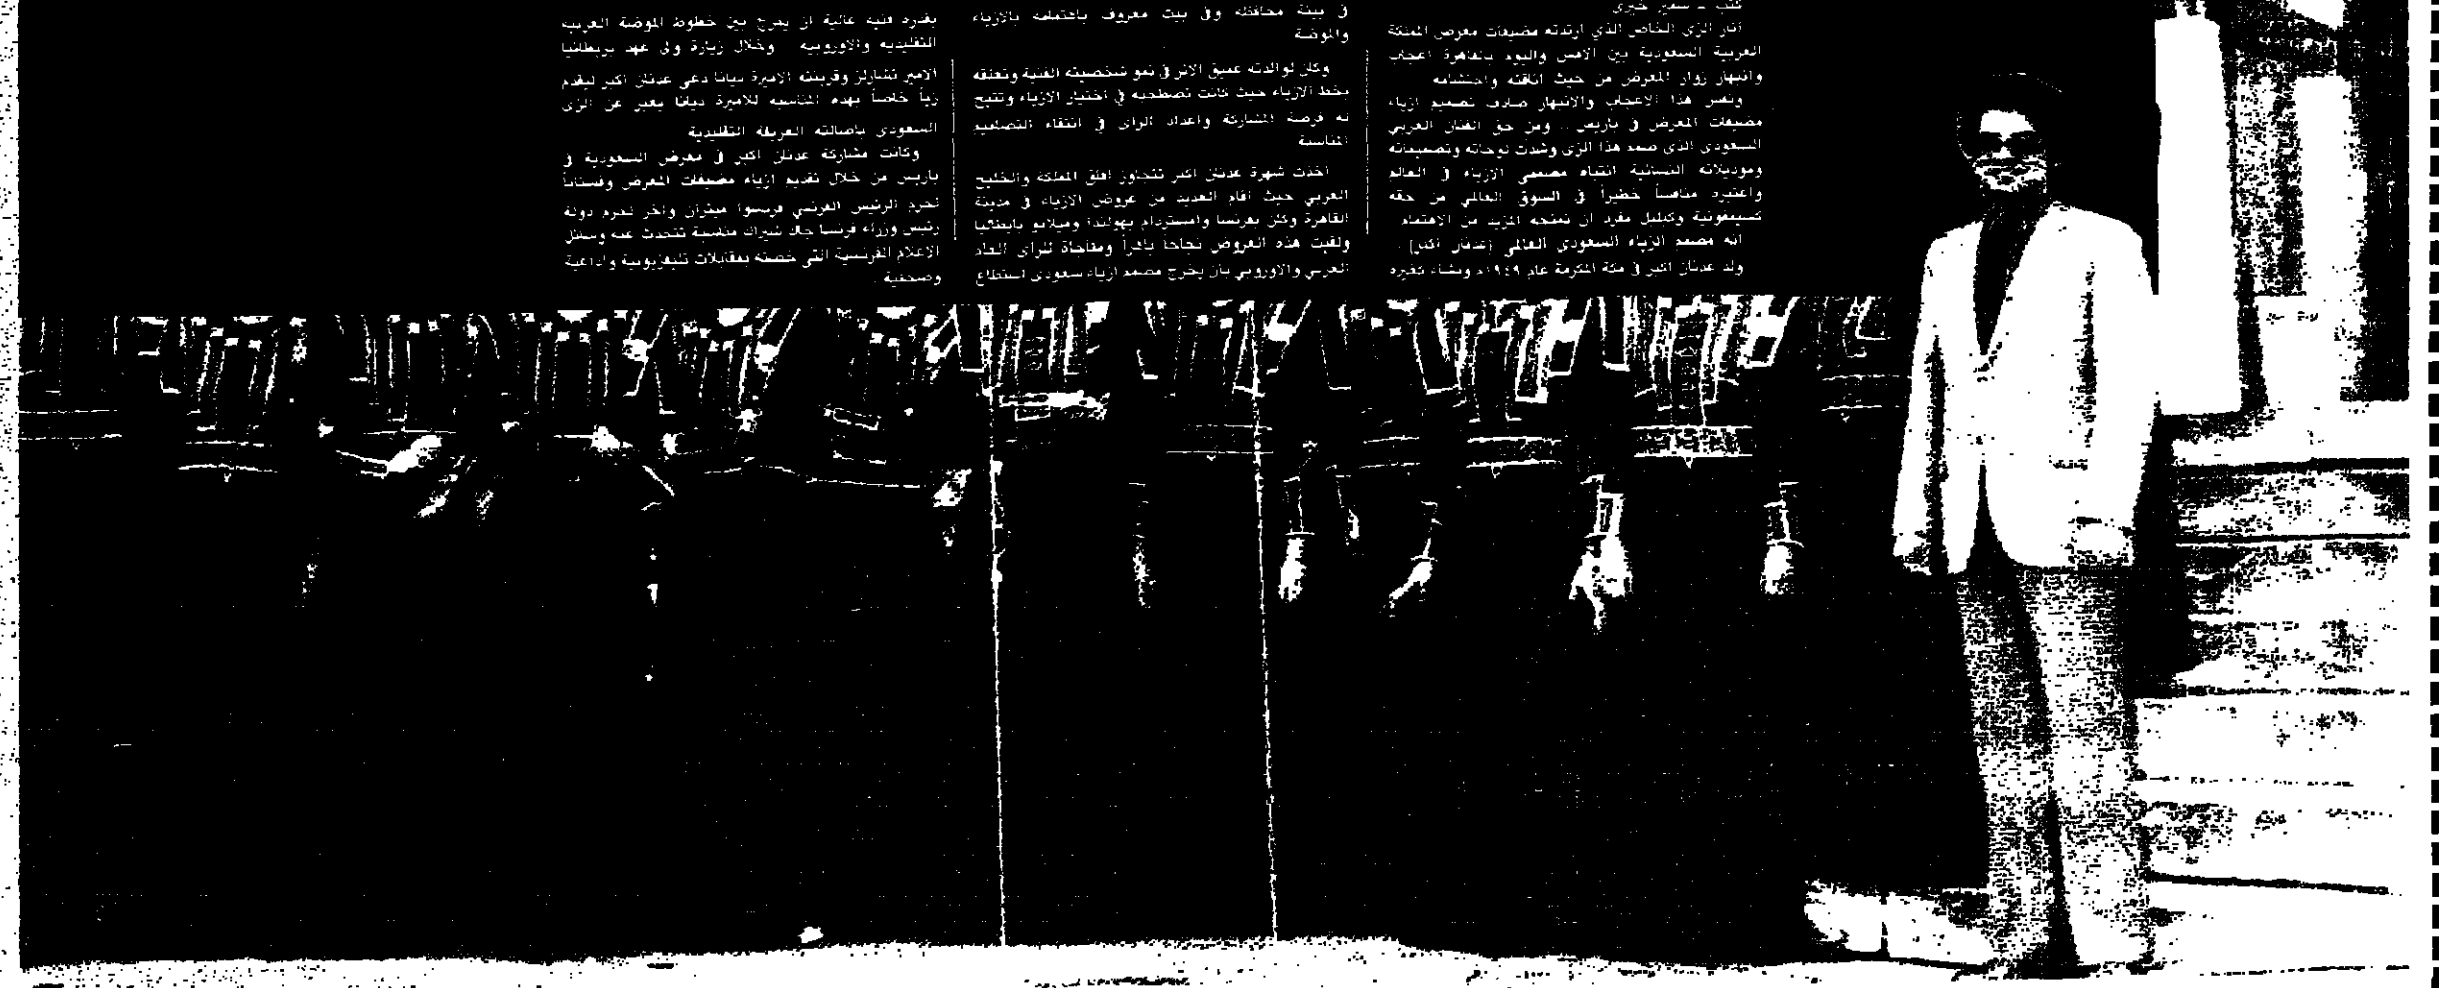 كتب ـ سمير خيري
أثار الزي الخاص الذي ارتدته مضيفات معرض المملكة
العربية السعودية بين الامس واليوم بالقاهرة اعجاب
وانبهار زوار المعرض من حيث اناقته واحتشامه
ونفس هذا الاعجاب والانبهار صادف تصميم ازياء
مضيفات المعرض في باريس .. ومن حق الفنان العربي
السعودي الذي صمم هذا الزي وشدت لوحاته وتصميماته
وموديلاته النسائية انتباه مصممي الازياء في العالم
واعتبره منافساً خطيراً في السوق العالمي من حقه
كسيمفونية وكبلبل مغرد أن نمنحه المزيد من الاهتمام
انه مصمم الزياء السعودي العالمي (عدنان اكبر) .
ولد عدنان اكبر في مكة المكرمة عام ١٩٤٩م ونشاء كغيره
في بيئة محافظة وفي بيت معروف باهتمامه بالازياء
والموضة
وكان لوالدته عميق الاثر في نمو شخصيته الفنية وتعلقه
بخط الازياء حيث كانت تصطحبه في اختيار الازياء وتتيح
له فرصة المشاركة واعداد الراى في انتقاء التصاميم
المناسبة
اخذت شهرة عدنان اكبر تتجاوز افق المملكة والخليج
العربي حيث أقام العديد من عروض الازياء في مدينة
القاهرة وكان بفرنسا وامستردام بهولندا وميلانو بايطاليا
ولقيت هذه العروض نجاحاً باهراً ومفاجأة للرأى العام
العربي والاوروبي بان يخرج مصمم ازياء سعودى استطاع
بقدرة فنية عالية ان يمزج بين خطوط الموضة العربية
التقليدية والاوروبية وخلال زيارة ولى عهد بريطانيا
الامير تشارلز وقرينته الاميرة ديانا دعي عدنان اكبر ليقدم
زياً خاصاً بهذه المناسبة للاميرة ديانا يعبر عن الزى
السعودى باصالته العريقة التقليدية
وكانت مشاركة عدنان اكبر في معرض السعودية في
باريس من خلال تقديم ازياء مضيفات المعرض وفستاناً
لحرم الرئيس الفرنسي فرنسوا ميتران وآخر لحرم دولة
رئيس وزراء فرنسا جاك شيراك مناسبة تتحدث عنه وسائل
الاعلام الفرنسية التي خصته بمقابلات تليفزيونية واذاعية
وصحفية .